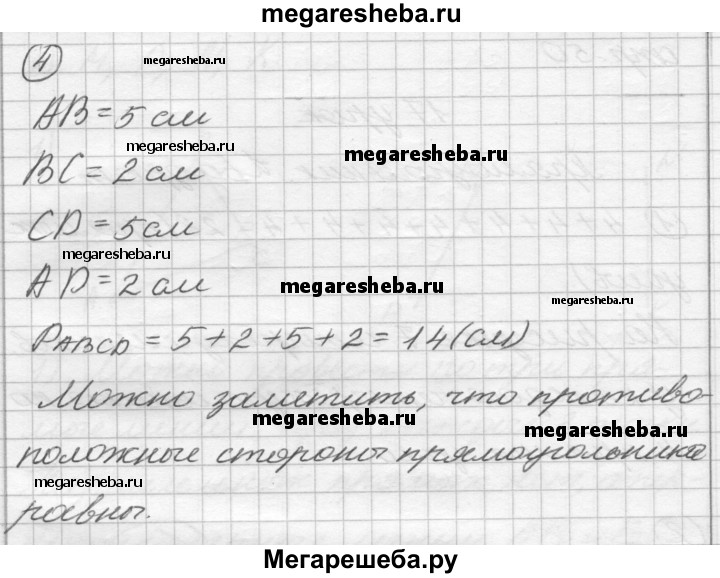 megaresheba.ru
4
megaresheba.ru
AB = 5 см
megaresheba.ru
megaresheba.ru
BC = 2 см
CD = 5 см
megaresheba.ru
AD = 2 см
megaresheba.ru
megaresheba.ru
PABCD = 5 + 2 + 5 + 2 = 14 (см)
Можно заметить, что противо-
megaresheba.ru
megaresheba.ru
положные стороны прямоугольника
megaresheba.ru
равны.
Мегарешеба.ру